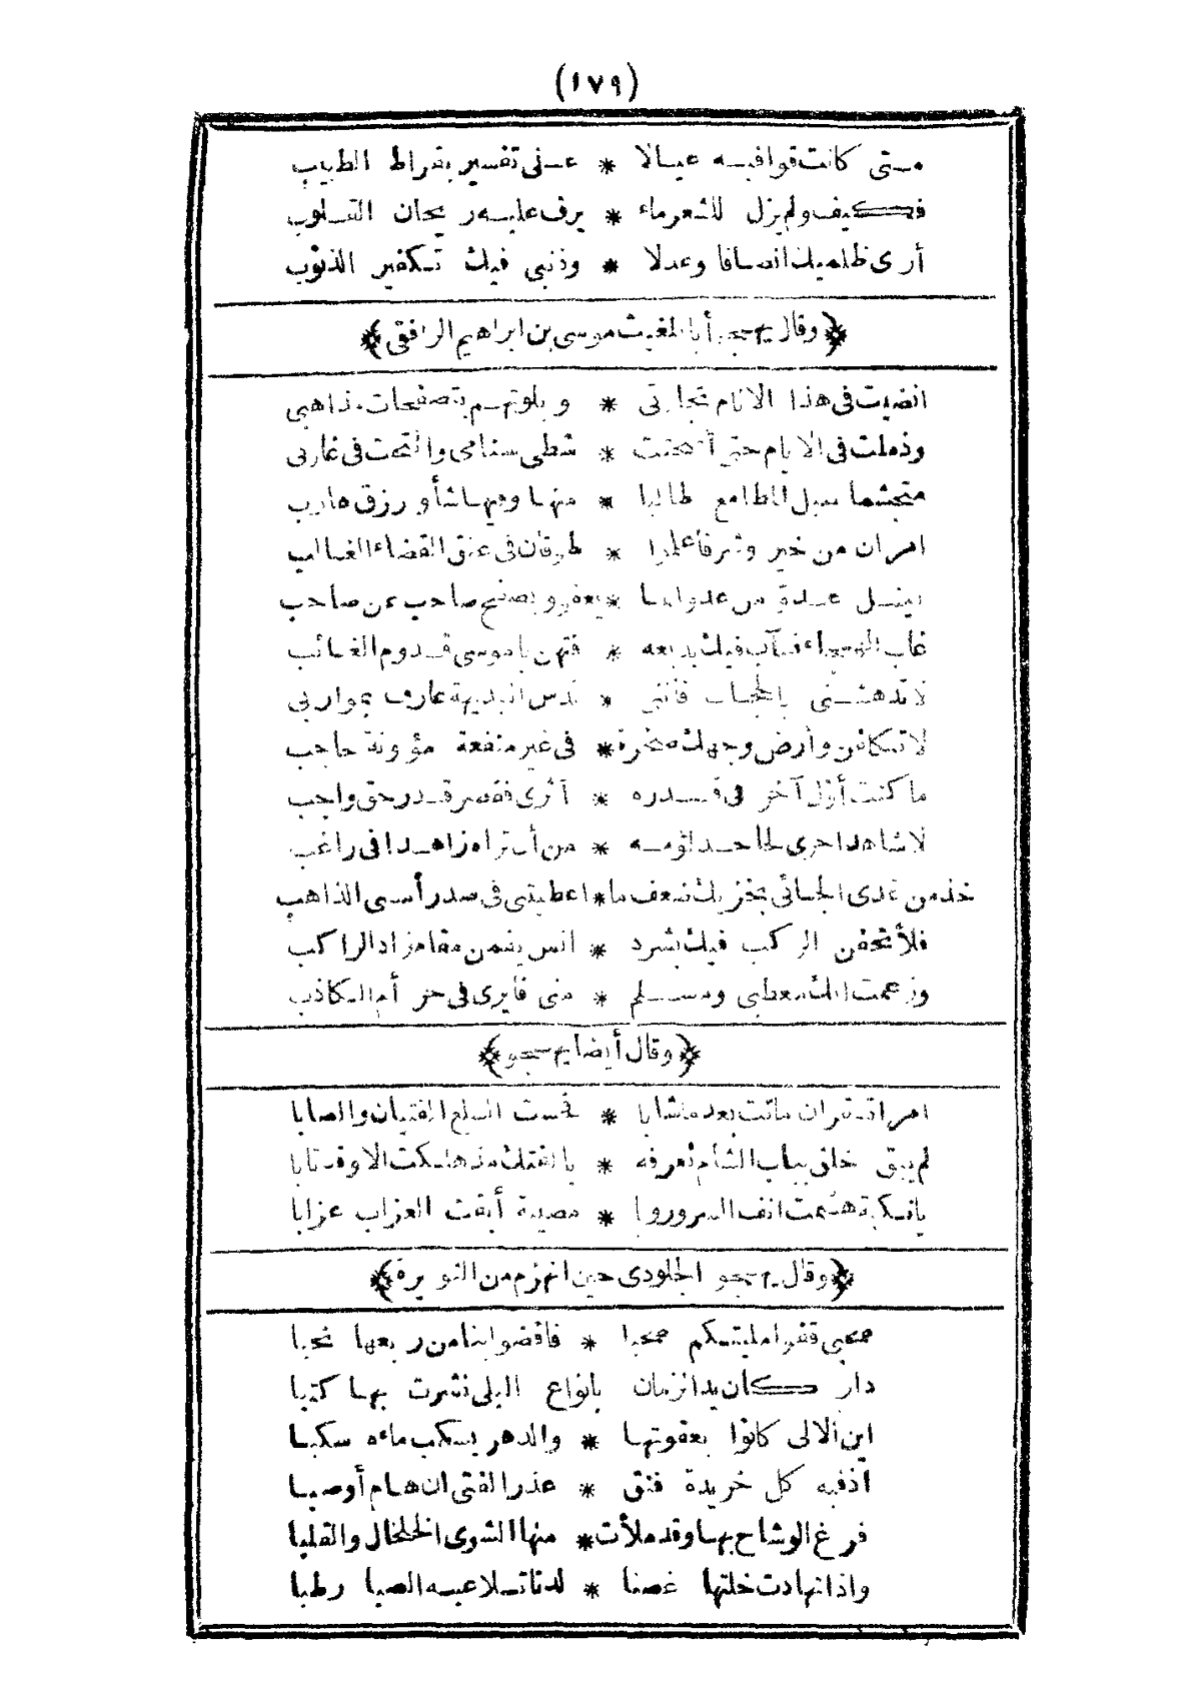 (١٧٩)
متى كانت قوافيه عيالا * على تفسير بقراط الطبيب
فكيف ولم يزل للشعر ماء * يرف عليه ريحان القلوب
أرى ظلميك انصافا وعدلا * وذنبي فيك تكفير الذنوب
﴿وقال يهجو أبا المغيث موسى بن ابراهيم الرافقى﴾
انضيت فى هذا الانام تجاربى * وبلوتهم بتصفحات مذاهبى
وذملت فى الايام حتى * شطى سنامى والتحت فى غاربى
متجشما سبل المطامع طالبا * منها وفيها شأو رزق هارب
امران من خير وشر فأعلما * طوقان فى عنق القضاء الغالب
عدوّ من * يعفو ويصفح صاحب عن صاحب
غاب الهجاء فآب فيك بديعه * فتهن يا موسى قدوم الغائب
لا تدهشنى بالحجاب فاننى * ندس البديهة عارف بمواربى
لا تكلفن وأرض وجهك صخرة * فى غير منفعة مؤونة حاجب
ما كنت أوّل آخر فى قدره * أثرى فقصر قدر حق واجب
لا شاهد اخرى لجاحد لؤمه * من أن تراه زاهدا فى راغب
خذ من غدى الجائى بخزيك ضعف ما * اعطيتنى فى صدر أمسى الذاهب
فلأتحفن الركب فيك بشرد * انس يقمن مقام زاد الراكب
وزعمت انك معطبى ومسلم * منى فايرى فى حر أم الكاذب
﴿وقال أيضا يهجو﴾
امرأة مقران ماتت بعد ما شابا * فحست السلع الفتيان والصابا
لم يبق خلق بباب الشأم نعرفه * بالفتك مذ هلكت الا وقد تابا
يا نكبة هشمت انف السرور ويا * مصيبة أبقت العزاب عزابا
﴿وقال يهجو الجلودى حين انهزم من النويرة﴾
صحبى قفوا مليتكم صحبا * فاقضوا بنا من ربعها نحبا
دار كأن يد الزمان بأنواع البلى نشرت بها كتبا
اين الالى كانوا بعقوتها * والدهر يسكب ماءه سكبا
اذ فيه كل خريدة فنق * عذر الفتى ان هام أو صبا
فرغ الوشاح بها وقد ملأت * منها الشوى الخلخال والقلبا
واذا تهادت خلتها غصنا * لدنا تلاعبه الصبا رطبا